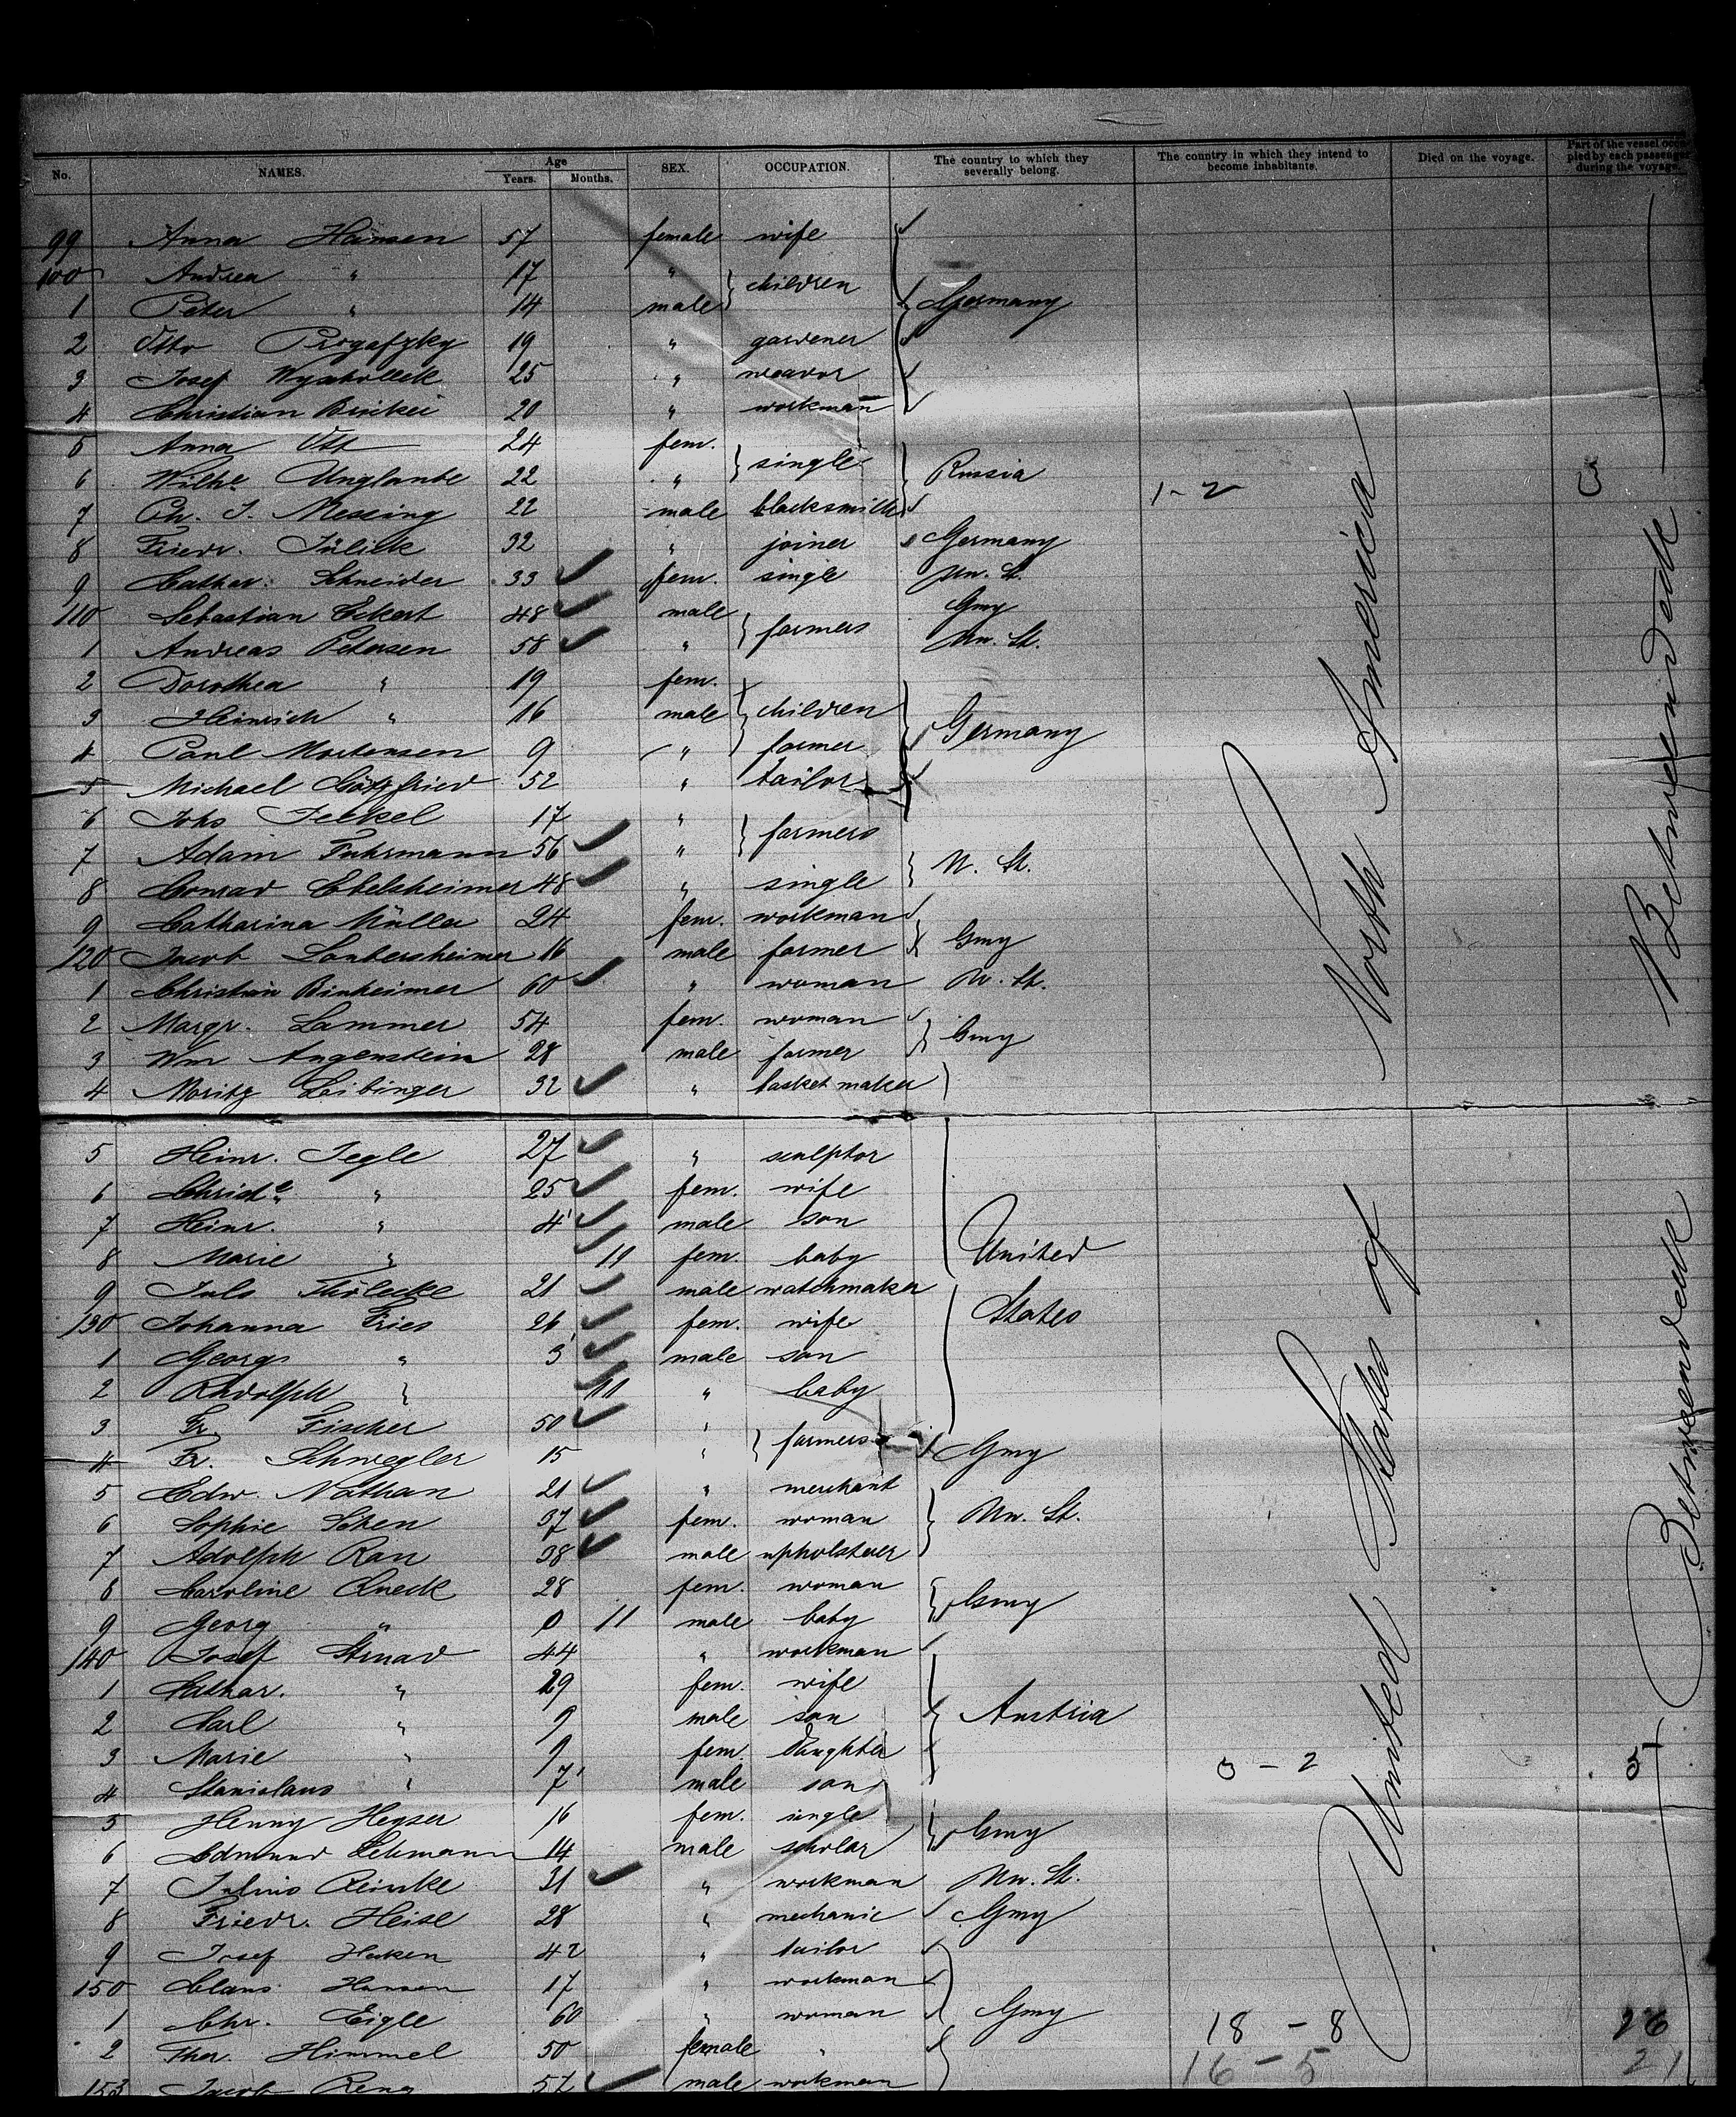 No. NAMES. Age Years. Months. SEX. OCCUPATION. The country to which they severally belong. The country in which they intend to become inhabitants. Died on the voyage. Part of the vessel occupied by each passenger during the voyage.
99 Anna Hansen 57 female wife
100 Andrea " 17 " children
1 Peter " 14 male Germany
2 Otto 19 " gardener
3 Josef 25 " weavor
4 Christian 20 " workman
5 Anna Ott 24 fem. single
6 Wilhe Unglaube 22 " Russia
7 Ph. J. Messing 22 male blacksmith 1-2
8 Friedr. Jülick 32 " joiner Germany
9 Cathar. Schneider 33 fem. single Un. St.
110 Sebastian Eckert 48 male farmers Gmy
1 Andreas Petersen 58 " Un. St.
2 Dorothea " 19 fem. children
3 Heinrich " 16 male Germany
4 Paul Mortensen 9 " farmer
5 Michael Götzfried 52 " tailor
6 Johs Jeckel 17 " farmers
7 Adam Fuhrmann 56 " U. St.
8 Conrad Ebelsheimer 48 " single
9 Catharina Müller 24 fem. workman
120 Jacob Laubersheimer 16 male farmer Gmy
1 Christian Rinheimer 60 " woman U. St.
2 Margr. Lammer 54 fem. woman Gmy
3 Wm Augenstein 28 male farmer
4 Moritz Leibinger 32 " basket maker
5 Heinr. Jegle 27 " sculptor
6 Christe " 25 fem. wife
7 Heinr. " 4 male son
8 Marie " 11 fem. baby United
9 Juls Thölecke 21 male watchmaker
130 Johanna Fries 26 fem. wife States
1 Georg " 3 male son
2 Rudolph " 11 " baby
3 Fr. Fischer 50 " farmers
4 Fr. Schwegler 15 " Gmy
5 Edw. Nathan 21 " merchant
6 Sophie 37 fem. woman Un. St.
7 Adolph Rau 38 male upholsterer
8 Caroline Queck 28 fem. woman Gmy
9 Georg " 0 11 male baby
140 Josef Strnad 44 " workman
1 Cathar. " 29 fem. wife
2 Carl " 9 male son Austria
3 Marie " 9 fem. daughter
4 Stanislaus " 7 male son 3-2 5
5 Henny Heyser 16 fem. single Gmy
6 Edmund Lehmann 14 male scholar
7 Julius Reinke 31 " workman Un. St.
8 Friedr. Heise 28 " mechanic Gmy
9 Josef Haken 42 " tailor
150 Claus Hansen 17 " workman
1 Chr. Eigle 60 " woman Gmy 18-8 26
2 Ther. Himmel 50 female " 16-5 21
153 Jacob Reng 52 male workman
United States of North America
Betweendeck
Betweendeck